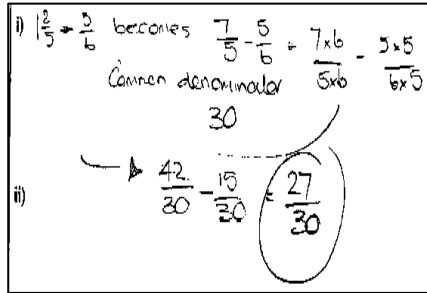 i) 1 2/5 - 5/6 becomes 7/5 - 5/6 = 7×6/5×6 - 5×5/6×5
Common denominator
30
ii) 42/30 - 15/30 = 27/30